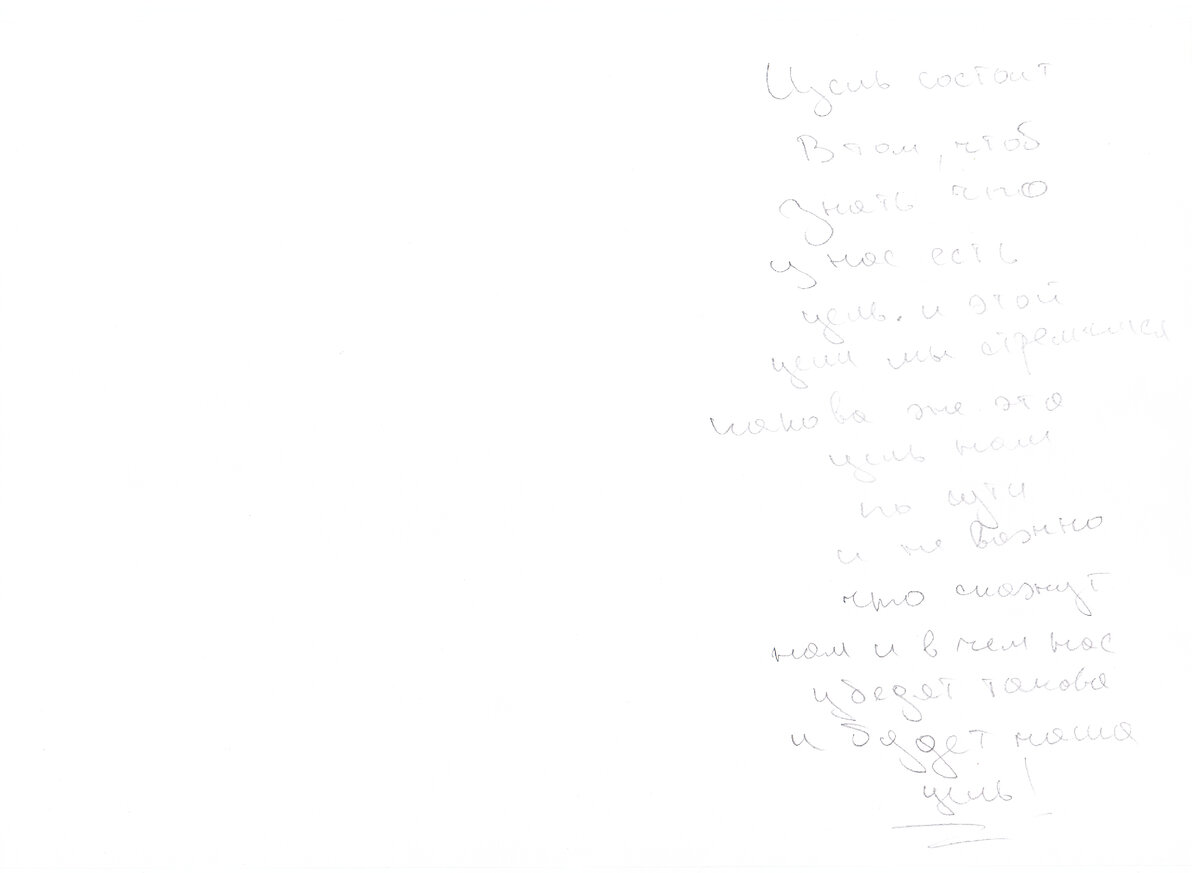 Цель состоит
В том, чтоб
Знать что
у нас есть
цель. и этой
цели мы стремимся
какова же эта
цель нам
по пути
и не важно
что скажут
нам и в чем нас
убедят такова
и будет наша
цель!